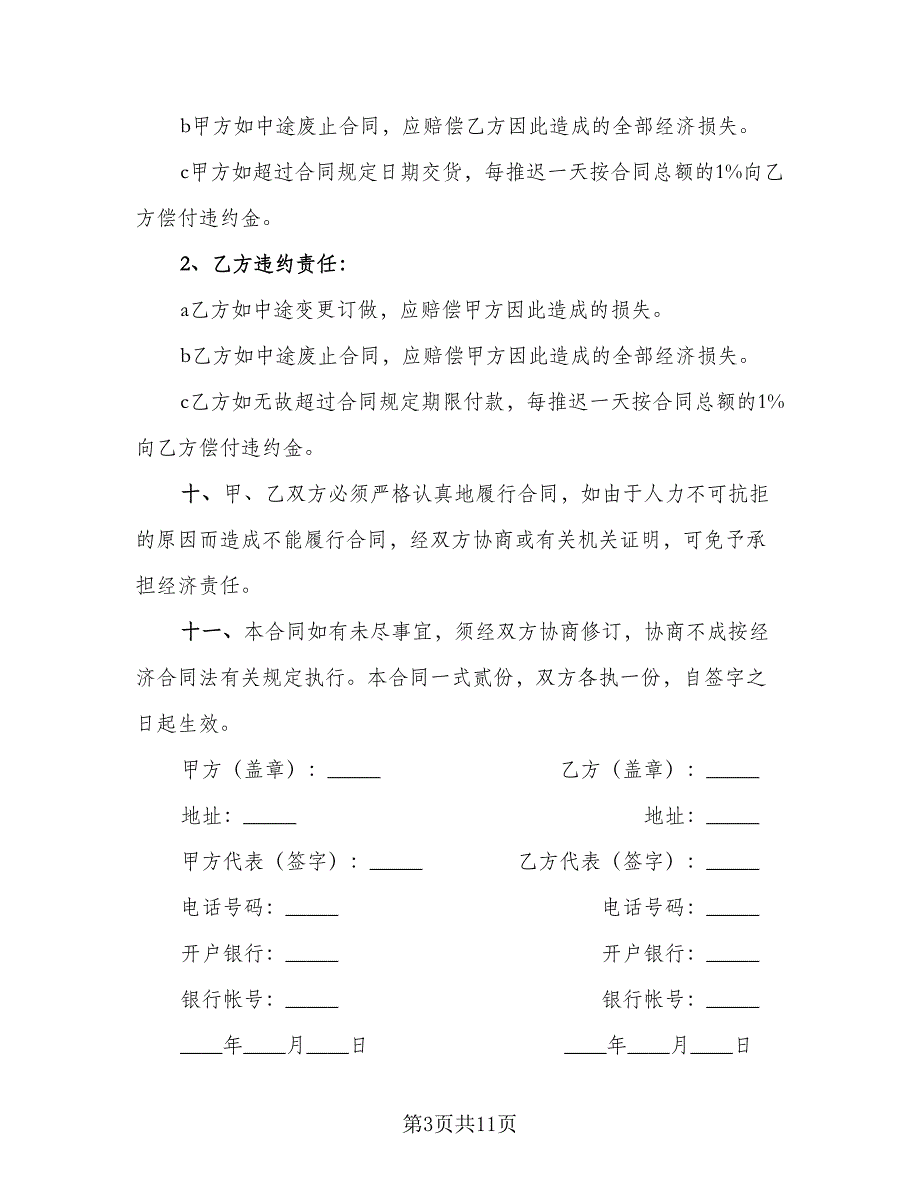 b甲方如中途废止合同，应赔偿乙方因此造成的全部经济损失。
c甲方如超过合同规定日期交货，每推迟一天按合同总额的1%向乙
方偿付违约金。
2、乙方违约责任：
a乙方如中途变更订做，应赔偿甲方因此造成的损失。
b乙方如中途废止合同，应赔偿甲方因此造成的全部经济损失。
c乙方如无故超过合同规定期限付款，每推迟一天按合同总额的1%
向乙方偿付违约金。
十、甲、乙双方必须严格认真地履行合同，如由于人力不可抗拒
的原因而造成不能履行合同，经双方协商或有关机关证明，可免予承
担经济责任。
十一、本合同如有未尽事宜，须经双方协商修订，协商不成按经
济合同法有关规定执行。本合同一式贰份，双方各执一份，自签字之
日起生效。
甲方（盖章）：_____ 乙方（盖章）：_____
地址：_____ 地址：_____
甲方代表（签字）：_____ 乙方代表（签字）：_____
电话号码：_____ 电话号码：_____
开户银行：_____ 开户银行：_____
银行帐号：_____ 银行帐号：_____
____年____月____日 ____年____月____日
第3页共11页